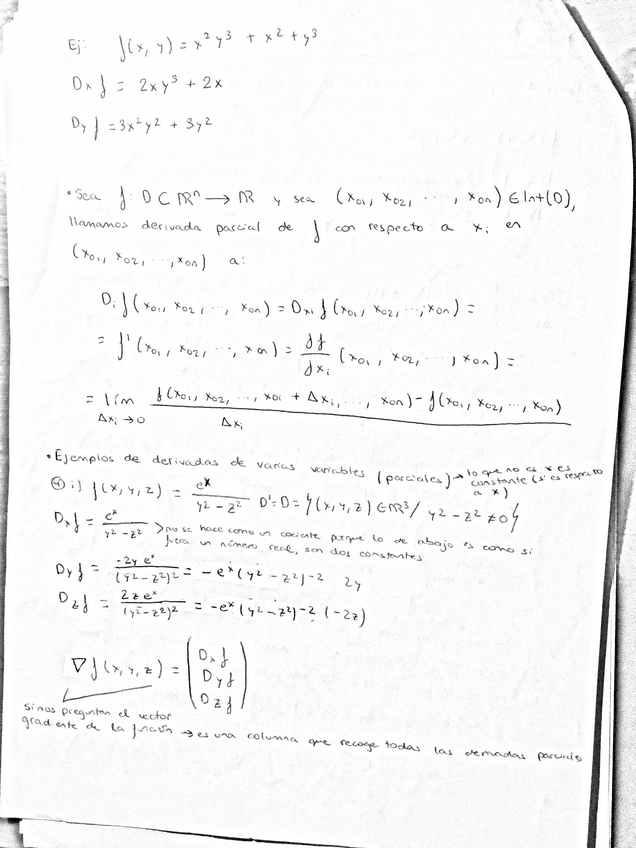 Ej: f(x, y) = x² y³ + x² + y³
Dx f = 2xy³ + 2x
Dy f = 3x²y² + 3y²
• Sea f: D ⊂ ℝⁿ → ℝ y sea (x₀₁, x₀₂, ..., x₀ₙ) ∈ Int(D),
llamamos derivada parcial de f con respecto a xᵢ en
(x₀₁, x₀₂, ..., x₀ₙ) a:
Dᵢ f(x₀₁, x₀₂, ..., x₀ₙ) = Dxᵢ f(x₀₁, x₀₂, ..., x₀ₙ) =
= f'(x₀₁, x₀₂, ..., x₀ₙ) = ∂f/∂xᵢ (x₀₁, x₀₂, ..., x₀ₙ) =
= lím Δxᵢ → 0 (f(x₀₁, x₀₂, ..., x₀ᵢ + Δxᵢ, ..., x₀ₙ) - f(x₀₁, x₀₂, ..., x₀ₙ)) / Δxᵢ
• Ejemplos de derivadas de varias variables (parciales) → lo que no es x es constante (si es respecto a x)
④ i) f(x, y, z) = eˣ / (y² - z²) D' = D = {(x, y, z) ∈ ℝ³ / y² - z² ≠ 0}
Dx f = eˣ / (y² - z²) > no se hace como un cociente porque lo de abajo es como si
fuera un número real, son dos constantes
Dy f = -2y eˣ / (y² - z²)² = -eˣ (y² - z²)⁻² 2y
Dz f = 2z eˣ / (y² - z²)² = -eˣ (y² - z²)⁻² (-2z)
∇f(x, y, z) = (Dx f
Dy f
Dz f)
Si nos preguntan el vector
gradiente de la función → es una columna que recoge todas las derivadas parciales